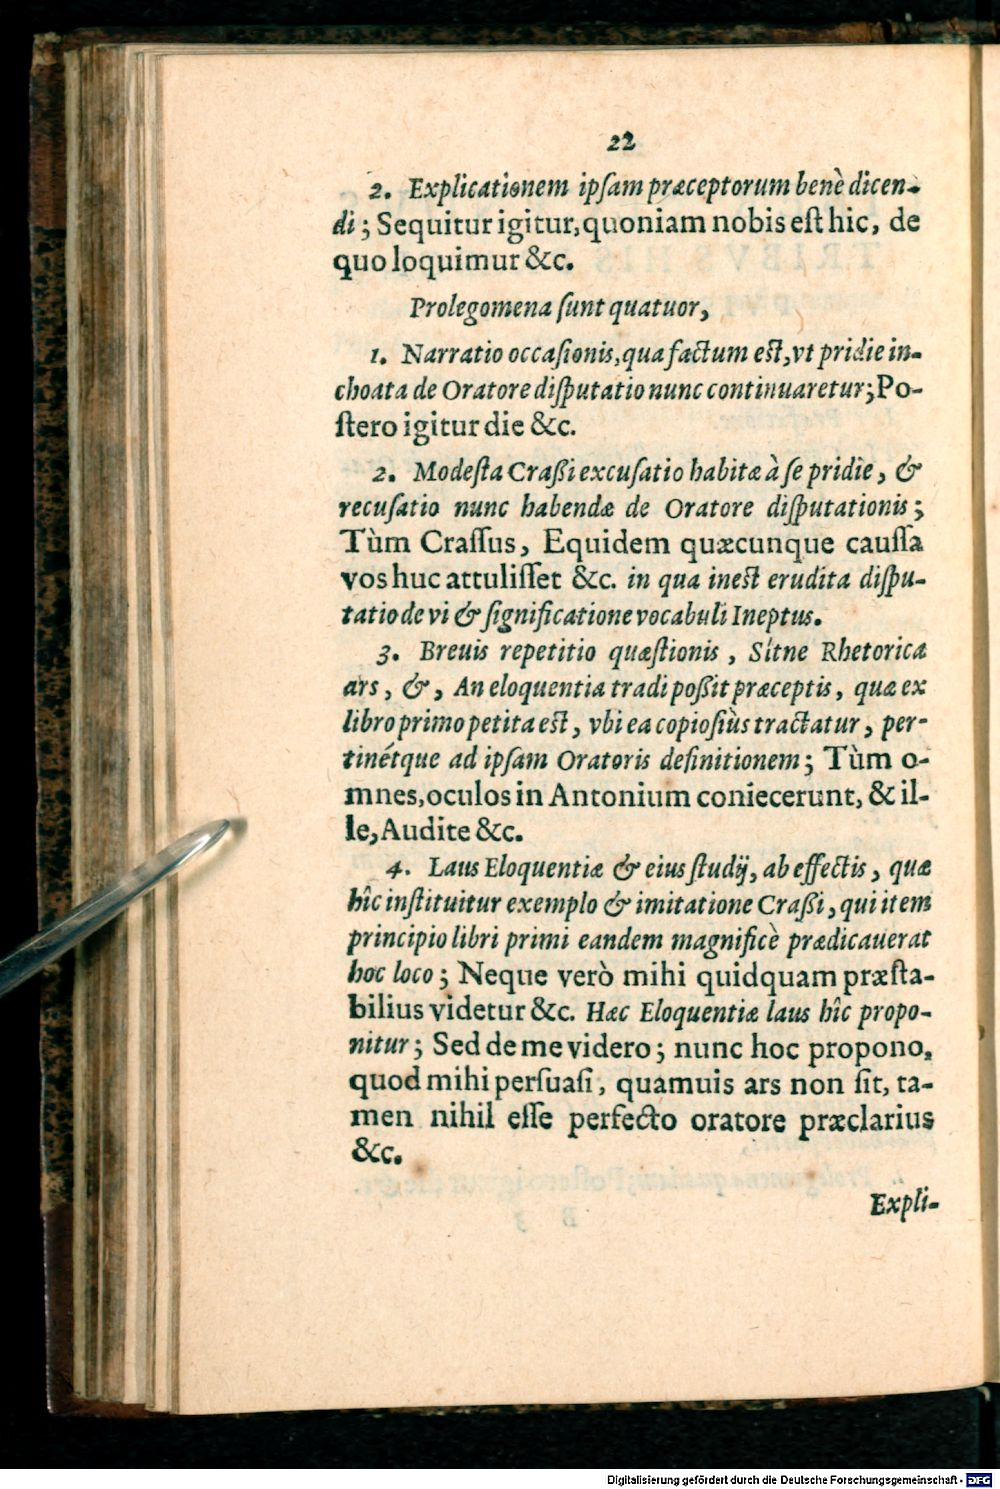 22
2. Explicationem ipſam præceptorum benè dicen-
di; Sequitur igitur, quoniam nobis eſt hic, de
quo loquimur &c.
Prolegomena ſunt quatuor,
1. Narratio occaſionis, qua factum eſt, vt pridie in-
choata de Oratore diſputatio nunc continuaretur; Po-
ſtero igitur die &c.
2. Modeſta Craßi excuſatio habitæ à ſe pridie, &
recuſatio nunc habendæ de Oratore diſputationis;
Tùm Craſſus, Equidem quæcunque cauſſa
vos huc attuliſſet &c. in qua ineſt erudita diſpu-
tatio de vi & ſignificatione vocabuli Ineptus.
3. Breuis repetitio quæſtionis, Sitne Rhetorica
ars, &, An eloquentia tradi poßit præceptis, quæ ex
libro primo petita eſt, vbi ea copioſiùs tractatur, per-
tinétque ad ipſam Oratoris definitionem; Tùm o-
mnes, oculos in Antonium coniecerunt, & il-
le, Audite &c.
4. Laus Eloquentiæ & eius ſtudij, ab effectis, quæ
hîc inſtituitur exemplo & imitatione Craßi, qui item
principio libri primi eandem magnificè prædicauerat
hoc loco; Neque verò mihi quidquam præſta-
bilius videtur &c. Hæc Eloquentiæ laus hîc propo-
nitur; Sed de me videro; nunc hoc propono,
quod mihi perſuaſi, quamuis ars non ſit, ta-
men nihil eſſe perfecto oratore præclarius
&c.
Expli-
Digitalisierung gefördert durch die Deutsche Forschungsgemeinschaft - DFG